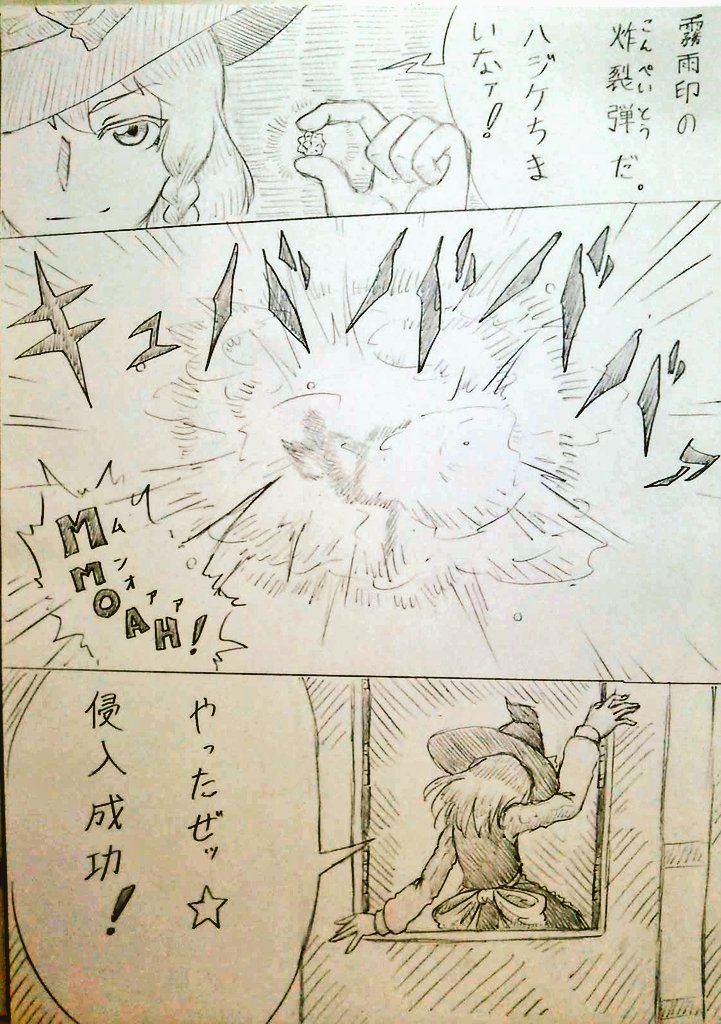 霧雨印の
炸裂弾だ。
こんぺいとう
ハジケちま
いなァ!
ギュババババババッ
MMOAH!
ムンオァァ
やったぜッ☆
侵入成功!